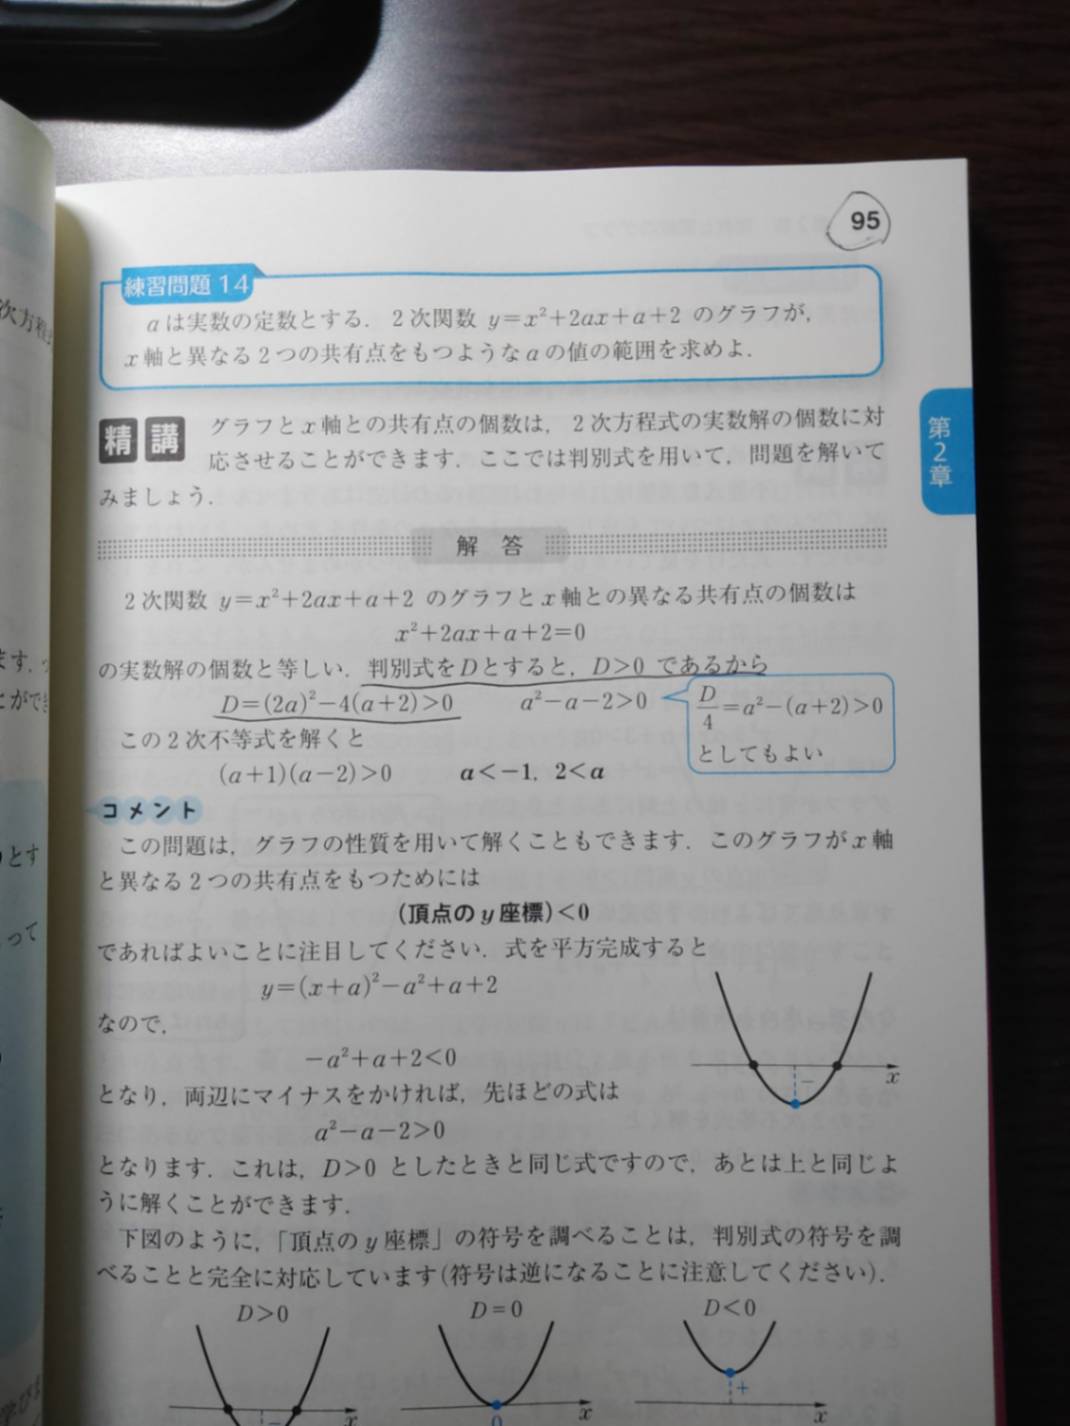 95
練習問題 14
aは実数の定数とする．2次関数 y=x²+2ax+a+2 のグラフが，
x軸と異なる2つの共有点をもつようなaの値の範囲を求めよ．
第2章
精講 グラフとx軸との共有点の個数は，2次方程式の実数解の個数に対
応させることができます．ここでは判別式を用いて，問題を解いて
みましょう．
解答
2次関数 y=x²+2ax+a+2 のグラフとx軸との異なる共有点の個数は
x²+2ax+a+2=0
の実数解の個数と等しい．判別式をDとすると，D>0 であるから
D=(2a)²−4(a+2)>0 a²−a−2>0
D/4=a²−(a+2)>0
としてもよい
この2次不等式を解くと
(a+1)(a−2)>0 a<−1，2<a
コメント
この問題は，グラフの性質を用いて解くこともできます．このグラフがx軸
と異なる2つの共有点をもつためには
(頂点のy座標)<0
であればよいことに注目してください．式を平方完成すると
y=(x+a)²−a²+a+2
なので，
−a²+a+2<0
となり，両辺にマイナスをかければ，先ほどの式は
a²−a−2>0
x
−
となります．これは，D>0 としたときと同じ式ですので，あとは上と同じよ
うに解くことができます．
下図のように，「頂点のy座標」の符号を調べることは，判別式の符号を調
べることと完全に対応しています(符号は逆になることに注意してください)．
D>0 D=0 D<0
− x 0 x + x